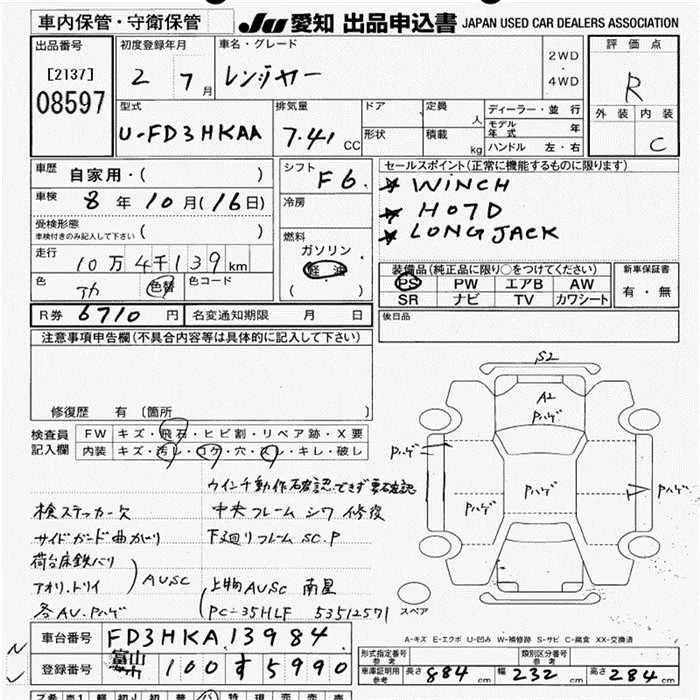 車内保管・守衛保管
JU 愛知 出品申込書 JAPAN USED CAR DEALERS ASSOCIATION
出品番号
[2137]
08597
初度登録年月
2 7月
車名・グレード
レンジャー
2WD
・
4WD
評価点
R
外装 内装
C
型式
U-FD3HKAA
排気量
7.41 CC
ドア
形状
定員 人
積載 kg
ディーラー・並行
モデル年式 年
ハンドル 左・右
車歴 自家用・( )
車検 8年10月(16日)
受検形態
車検付きのみ記入して下さい ( )
走行
10万4千139km
色 アカ 色替 色コード
シフト F6.
冷房
燃料
ガソリン
軽油
( )
セールスポイント(正常に機能するものに限ります)
★ WINCH
★ H07D
★ LONG JACK
装備品(純正品に限り○をつけてください)
PS PW エアB AW
SR ナビ TV カワシート
新車保証書
有・無
R券 6710円 名変通知期限 月 日
後日品
注意事項申告欄(不具合内容等は具体的に記入して下さい)
修復歴 有 〔箇所 〕
検査員
記入欄
FW キズ・飛石・ヒビ割・リペア跡・X要
内装 キズ・汚レ・コゲ・穴・スレ・キレ・破レ
ウインチ動作確認できず要確認
検ステッカー欠
中央フレームシワ修復
サイドガード曲がり
下廻りフレームSC.P
荷台床鉄バリ
アオリ.トリイ AUSC
各AU.Pハゲ
上物AUSC 南星
PC-35HLF 53512571
S2
A2
Pハゲ
Pハゲ
Pハゲ
Pハゲ
Pハゲ
スペア
車台番号 FD3HKA13984
登録番号 富山 100す5990
A-キズ E-エクボ U-凹み W-補修跡 S-サビ C-腐食 XX-交換済
型式指定番号
参考
類別区分番号
参考
車庫証明用
参考
長さ 884cm 幅 232cm 高さ 284cm